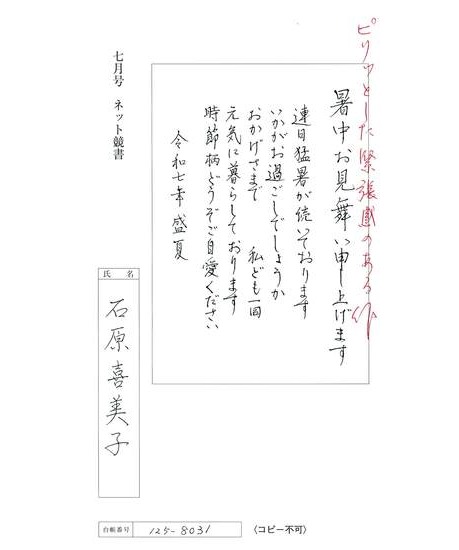 ピリッとした緊張感のある作
暑中お見舞い申し上げます
連日猛暑が続いております
いかがお過ごしでしょうか
おかげさまで　私ども一同
元気に暮らしております
時節柄どうぞご自愛ください
令和七年盛夏
七月号　ネット競書
氏名
石原喜美子
台帳番号
125-8031
〈コピー不可〉